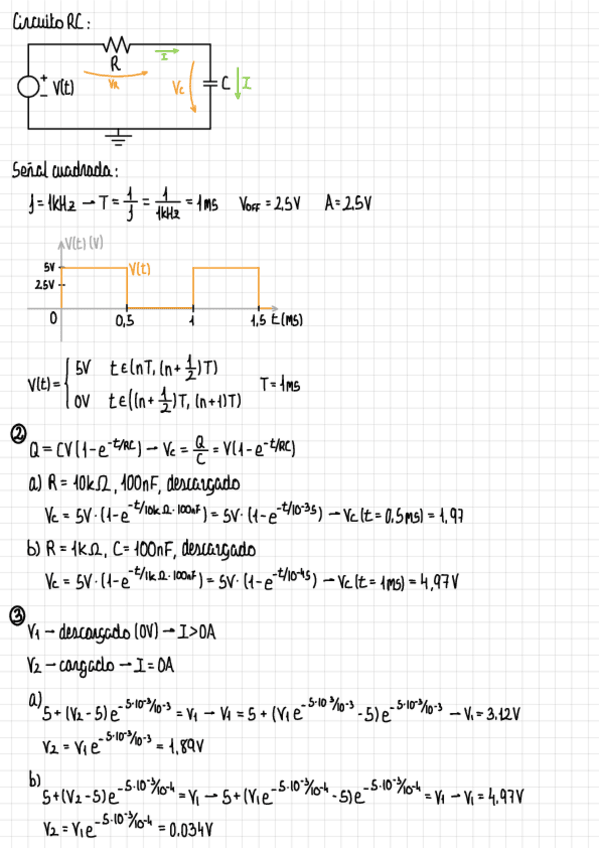 Circuito RC:
R
I
+
V(t)
VR
Vc
C
I
Señal cuadrada:
f = 1kHz → T = 1/f = 1/1kHz = 1ms VOFF = 2.5V A = 2.5V
V(t) (V)
5V
V(t)
2.5V
0 0,5 1 1,5 t(ms)
V(t) = { 5V t∈(nT, (n+1/2)T)
0V t∈((n+1/2)T, (n+1)T)
T = 1ms
② Q = CV(1-e^-t/RC) → Vc = Q/C = V(1-e^-t/RC)
a) R = 10kΩ, 100nF, descargado
Vc = 5V·(1-e^-t/10kΩ·100nF) = 5V·(1-e^-t/10-3s) → Vc(t=0,5ms) = 1,97
b) R = 1kΩ, C = 100nF, descargado
Vc = 5V·(1-e^-t/1kΩ·100nF) = 5V·(1-e^-t/10-4s) → Vc(t=1ms) = 4,97V
③
V1 → descargado (0V) → I>0A
V2 → cargado → I=0A
a) 5+(V2-5)e^-5·10^-3/10^-3 = V1 → V1 = 5+(V1e^-5·10^-3/10^-3 -5)e^-5·10^-3/10^-3 → V1 = 3.12V
V2 = V1e^-5·10^-3/10^-3 = 1,89V
b) 5+(V2-5)e^-5·10^-3/10^-4 = V1 → 5+(V1e^-5·10^-3/10^-4 -5)e^-5·10^-3/10^-4 = V1 → V1 = 4.97V
V2 = V1e^-5·10^-3/10^-4 = 0.034V